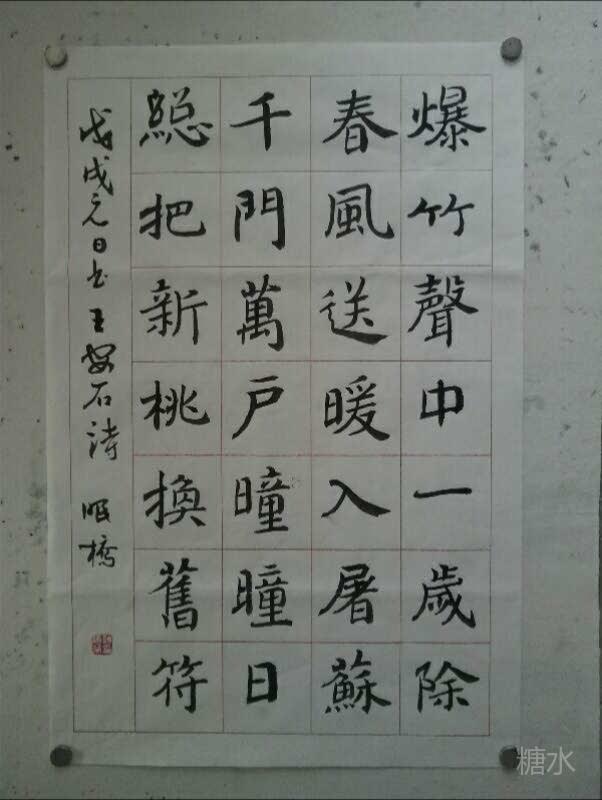 爆竹聲中一歲除
春風送暖入屠蘇
千門萬戶曈曈日
總把新桃換舊符
戊戌元日书王安石诗 眼橋
糖水